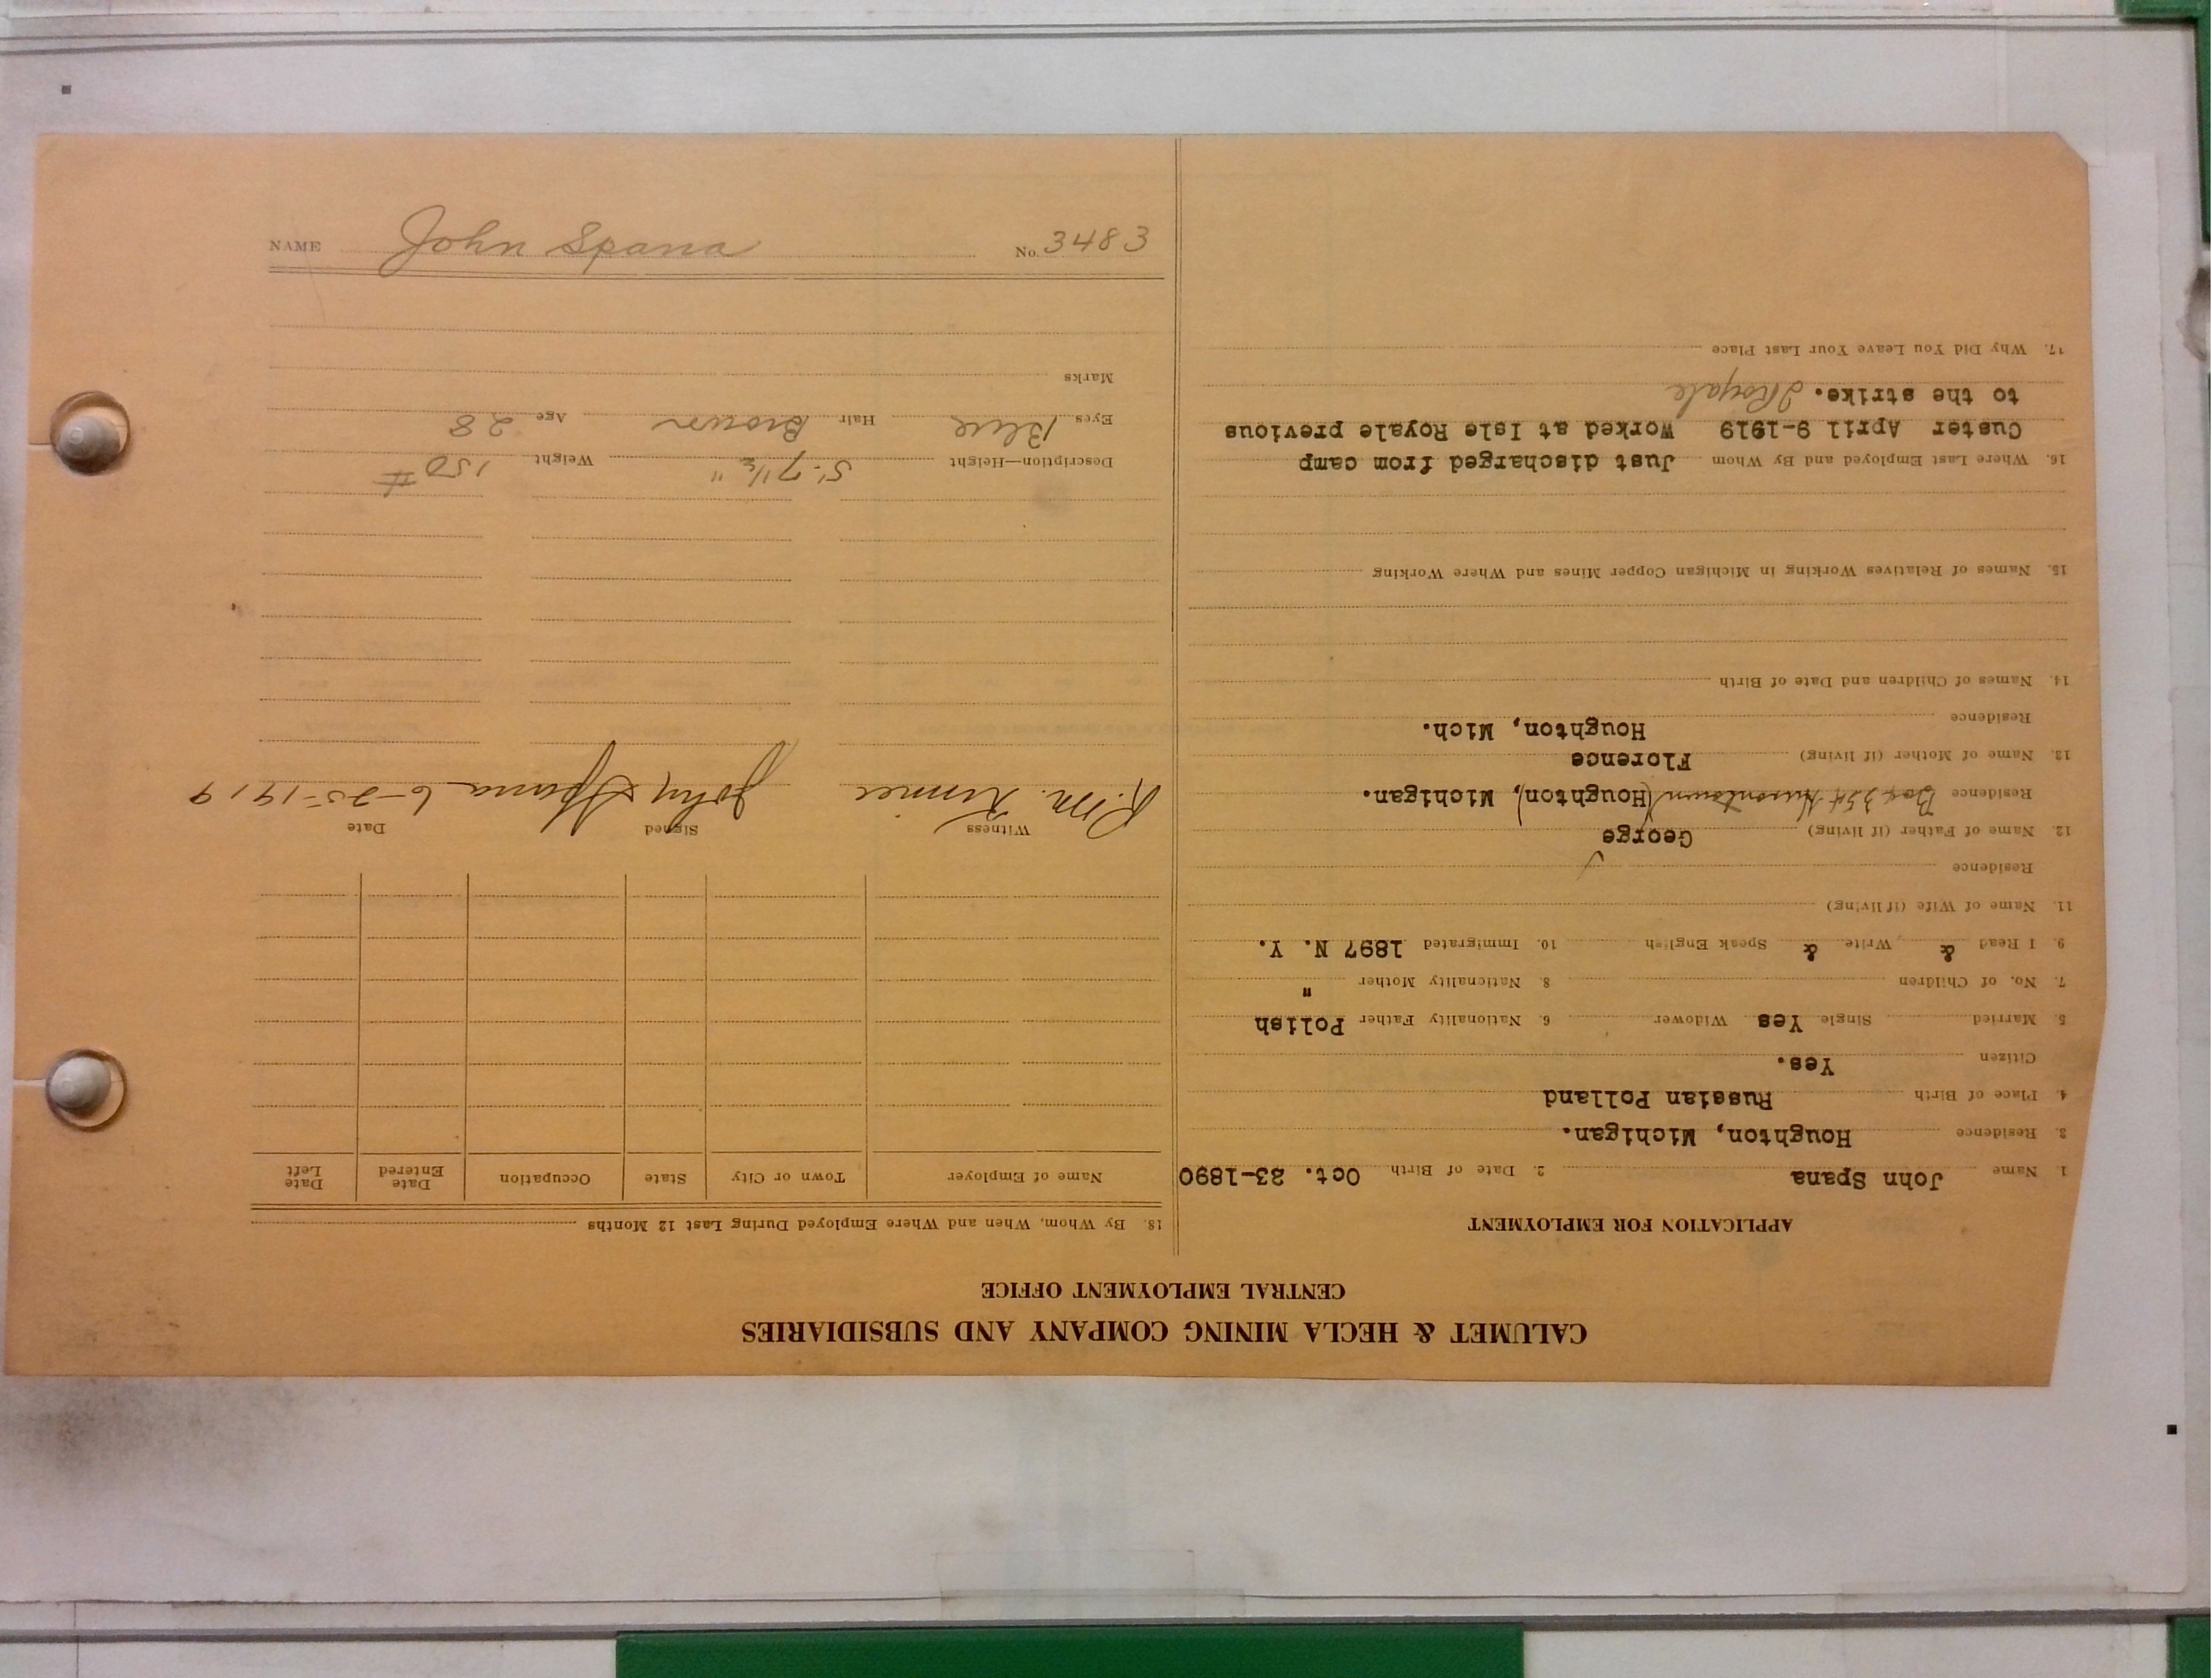 CALUMET & HECLA MINING COMPANY AND SUBSIDIARIES
CENTRAL EMPLOYMENT OFFICE
APPLICATION FOR EMPLOYMENT
1. Name John Spana 2. Date of Birth Oct. 23-1890
3. Residence Houghton, Michigan.
4. Place of Birth Russian Polland
Citizen Yes.
5. Married Single Yes Widower 6. Nationality Father Polish
7. No. of Children 8. Nationality Mother "
9. I Read & Write & Speak English 10. Immigrated 1897 N. Y.
11. Name of Wife (if living)
Residence
12. Name of Father (if living) George
Residence Box 354 Hurontown (Houghton), Michigan.
13. Name of Mother (if living) Florence
Residence Houghton, Mich.
14. Names of Children and Date of Birth
15. Names of Relatives Working in Michigan Copper Mines and Where Working
16. Where Last Employed and By Whom Just discharged from camp
Custer April 9-1919 Worked at Isle Royale previous
to the strike. I Royale
17. Why Did You Leave Your Last Place
18. By Whom, When and Where Employed During Last 12 Months
Name of Employer Town or City State Occupation Date Entered Date Left
Witness Signed Date
R.M. John Spana 6-25-1919
Description—Height 5'-7 1/2" Weight 150 #
Eyes Blue Hair Brown Age 28
Marks
NAME John Spana No. 3483